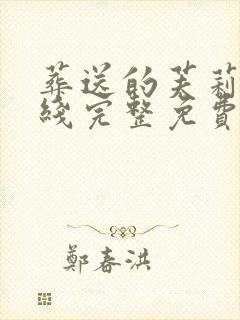 葬送的芙莉
綫完整免費
鄭春洪